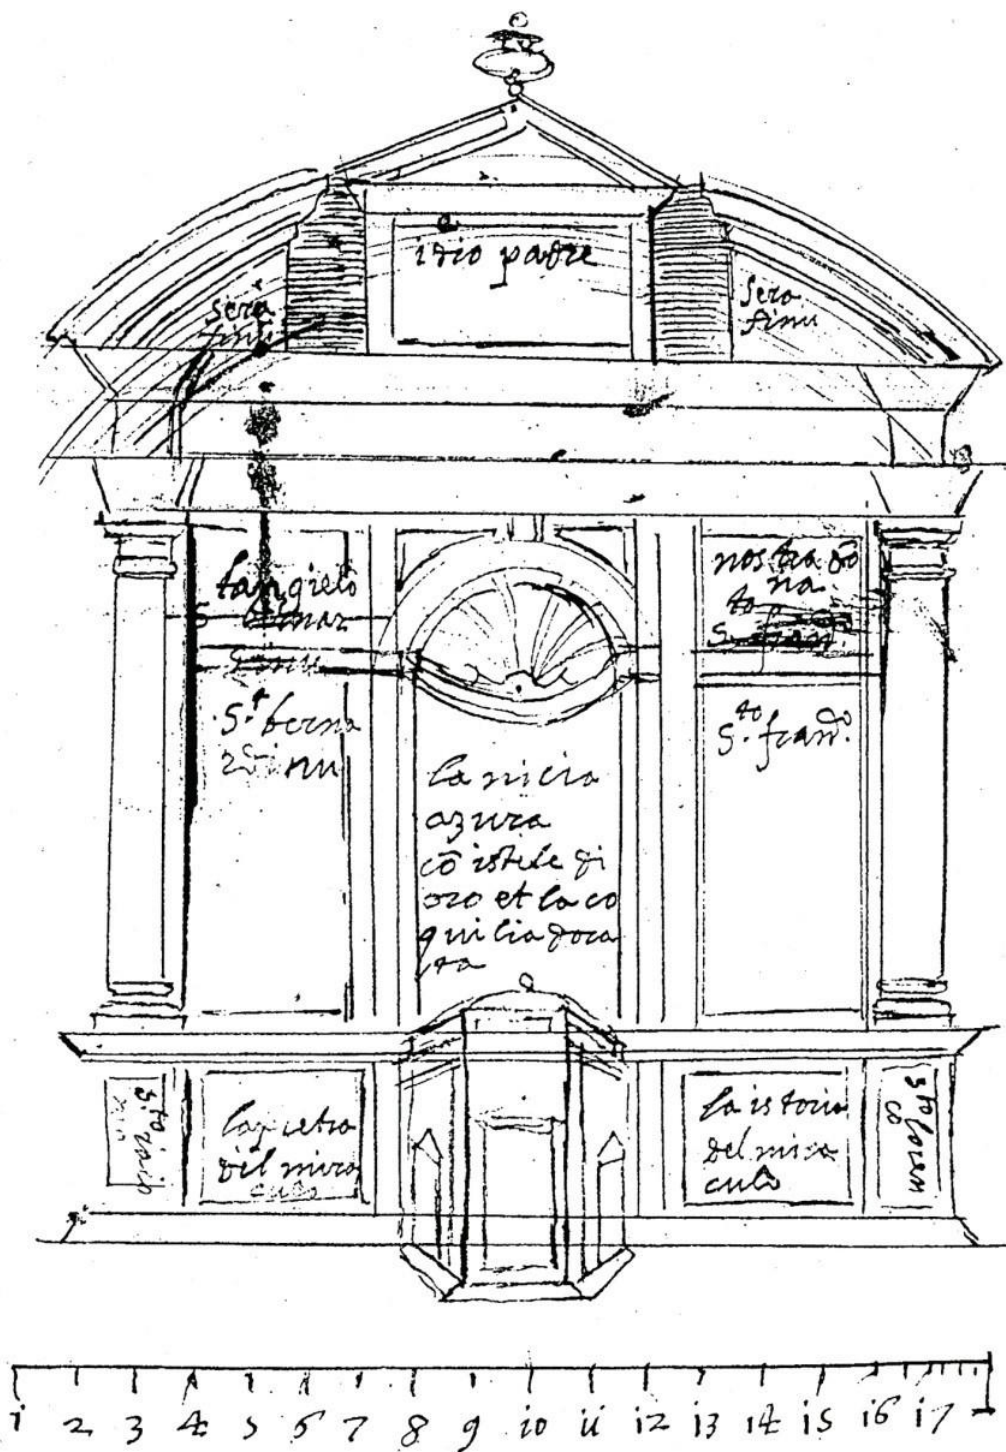 idio padre
sera
finu
sera
finu
langielo
nostra dō
na
to
S.t berna
rdinu
S.to frand.o
la nicia
azura
cō istele di
oro et la co
quilia dora
ta
la pietra
del mira
culo
la istoria
del mira
culo
S.to
s.to loren
co
1 2 3 4 5 6 7 8 9 10 11 12 13 14 15 16 17